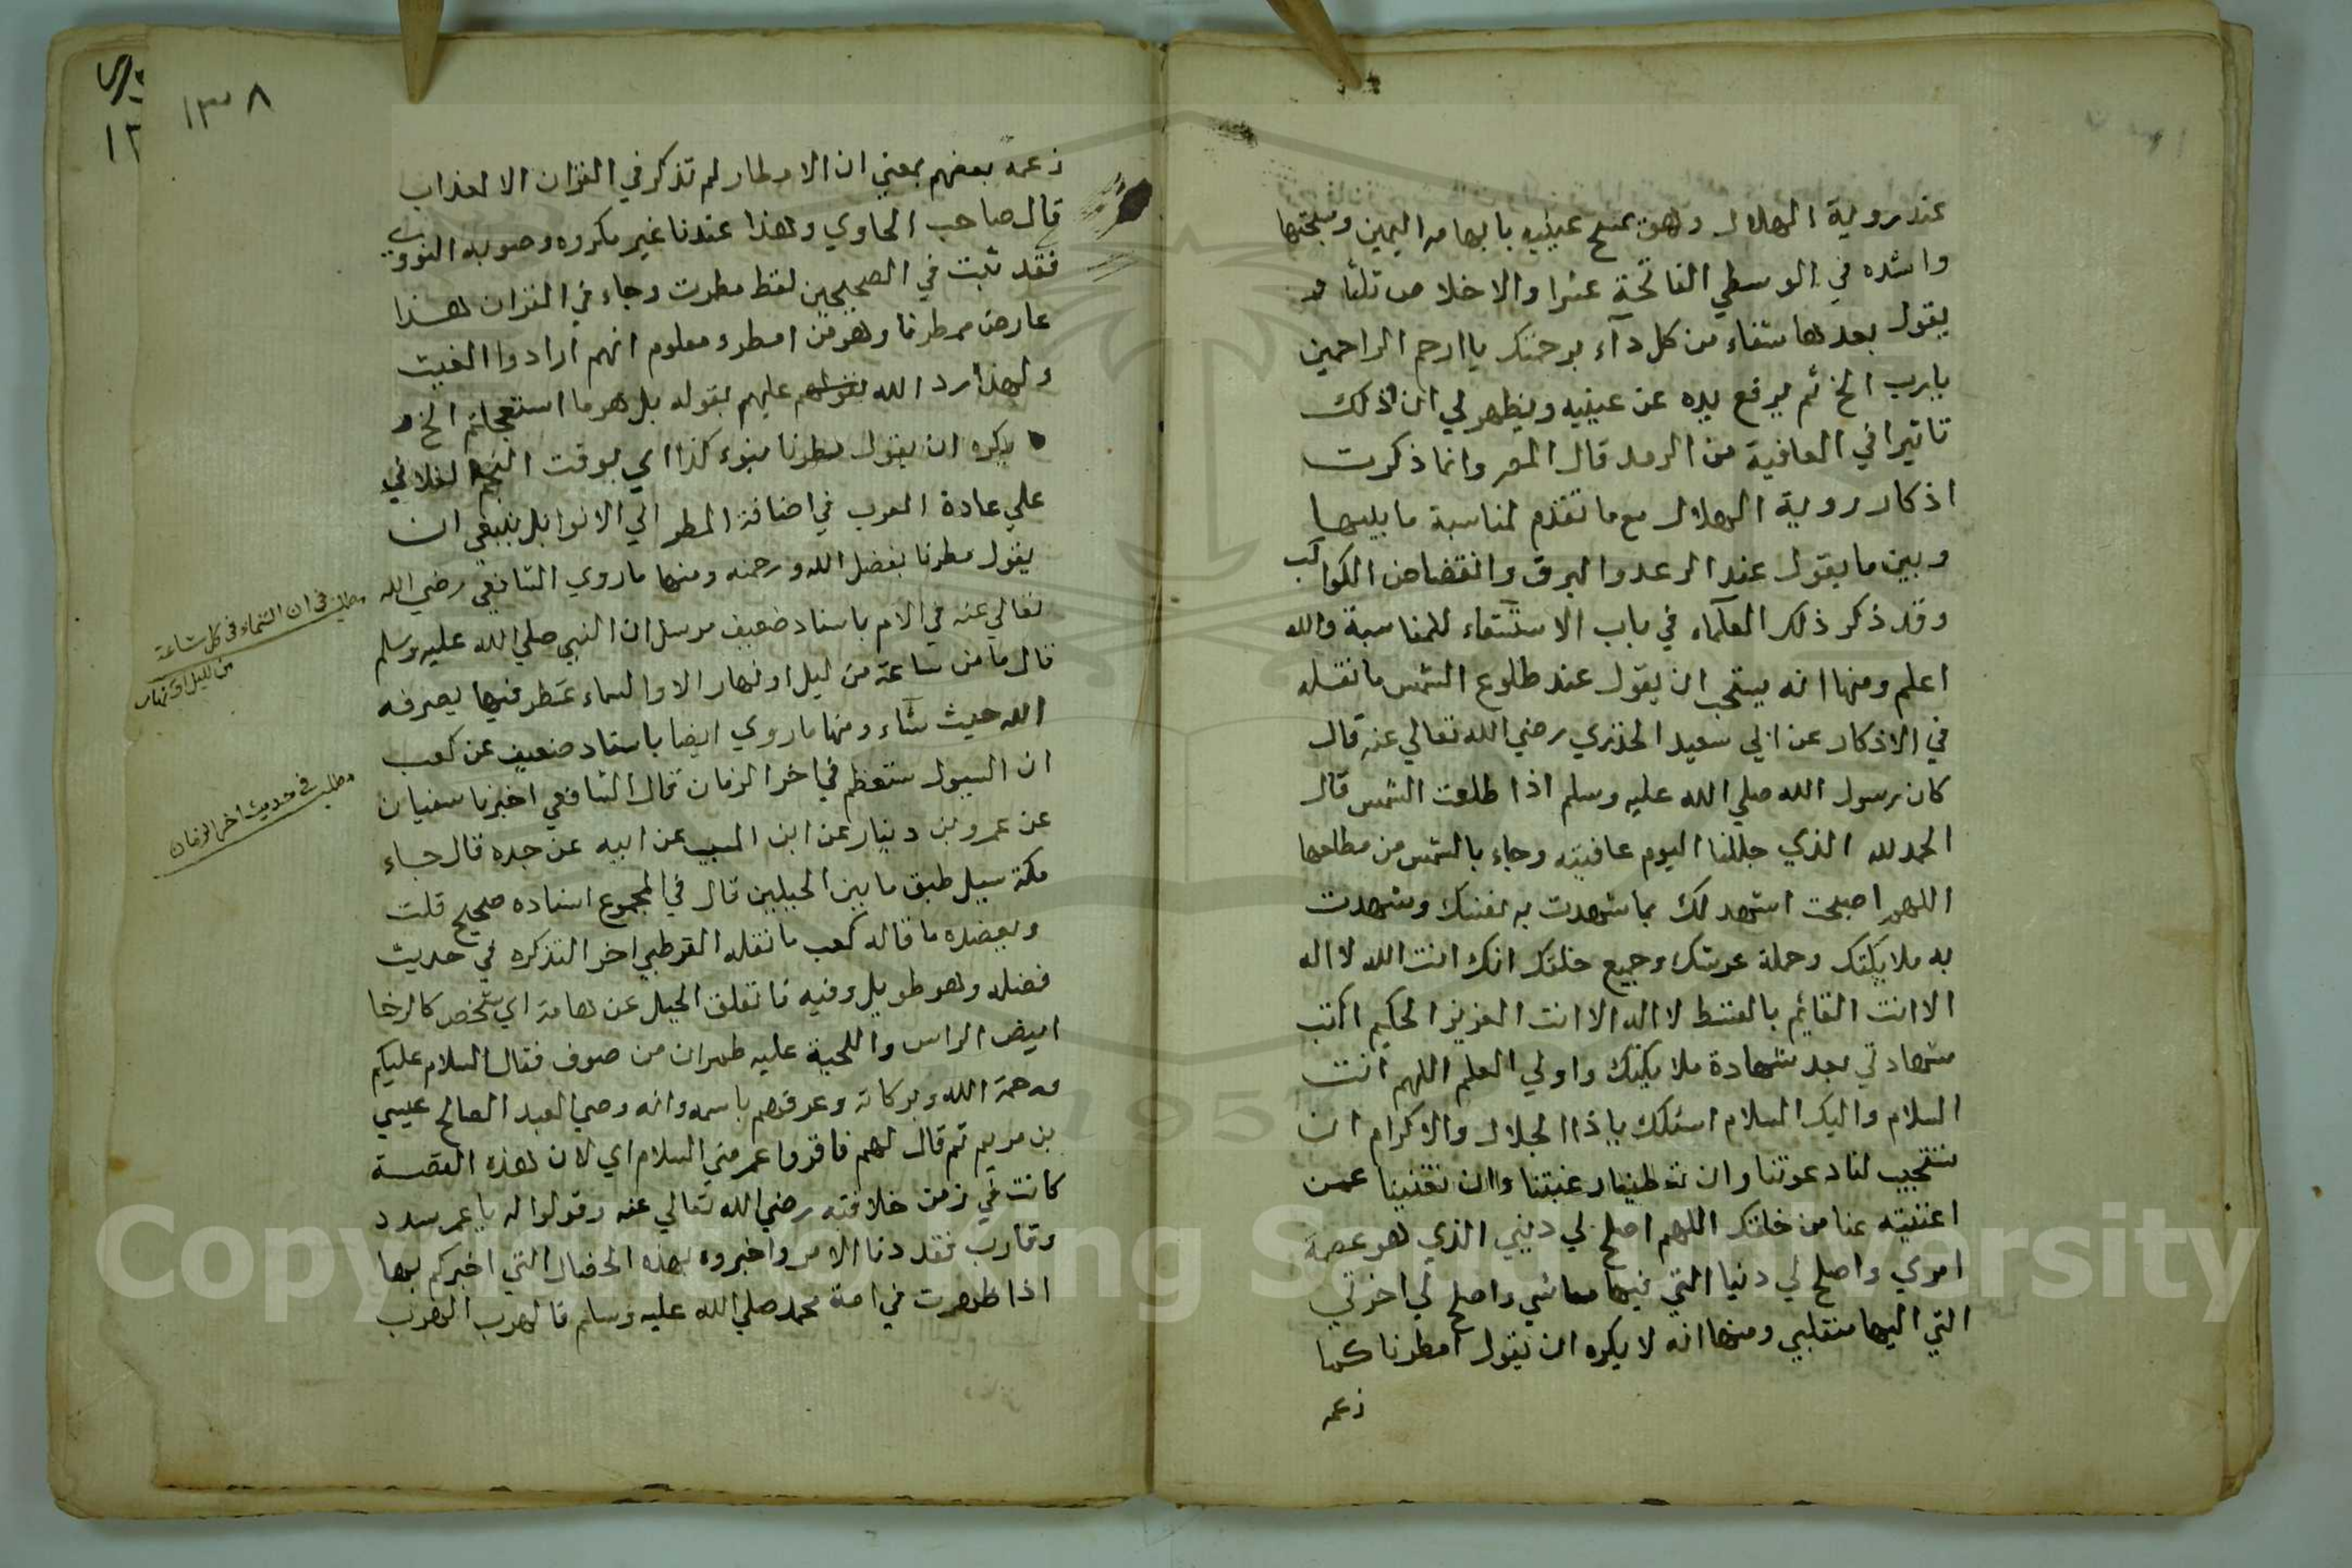 عند روية الهلال وهو يمسح عينيه بابهامه اليمين ومسبحتها
واشده في الوسطي الفاتحة عشرا والاخلاص ثلثا و
يقول بعدها شفاء من كل دآء برحمتك ياارحم الراحمين
يارب الخ ثم يرفع يده عن عينيه ويظهر لي ان لذلك
تاثيرا في العافية من الرمد قال المص وانما ذكرت
اذكار روية الهلال مع ما تقدم لمناسبة ما بينها
وبين ما يقول عند الرعد والبرق وانقضاض الكواكب
وقد ذكر ذلك العلماء في باب الاستسقاء للمناسبة والله
اعلم ومنها انه يستحب ان يقول عند طلوع الشمس ما نقله
في الاذكار عن ابي سعيد الخدري رضي الله تعالي عنه قال
كان رسول الله صلي الله عليه وسلم اذا طلعت الشمس قال
الحمد لله الذي جللنا اليوم عافيته وجاء بالشمس من مطلعها
اللهم اصبحت اشهد لك بما شهدت به لنفسك وشهدت
به ملايكتك وحملة عرشك وجميع خلقك انك انت الله لا اله
الا انت القايم بالقسط لا اله الا انت العزيز الحكيم اكتب
شهادتي بعد شهادة ملايكتك واولي العلم اللهم انت
السلام واليك السلام اسئلك ياذا الجلال والاكرام ان
تستجيب لنا دعوتنا وان تعطينا رغبتنا وان تغنينا عمن
اغنيته عنا من خلقك اللهم اصلح لي ديني الذي هو عصمة
امري واصلح لي دنيا التي فيها معاشي واصلح لي اخرتي
التي اليها منقلبي ومنها انه لا يكره ان يقول امطرنا كما
زعمه
١٣٨
زعمه بعضهم بمعني ان الامطار لم تذكر في القران الا لعذاب
قال صاحب الحاوي وهذا عندنا غير مكروه وصوبه النووي
فقد ثبت في الصحيحين لفظ مطرت وجاء في القران هذا
عارض ممطرنا وهو من امطر ومعلوم انهم ارادوا الغيث
ولهذا رد الله عليهم بقوله بل هو ما استعجلتم الخ و
يكره ان يقول مطرنا بنوء كذا اي بوقت النجم الفلاني
علي عادة العرب في اضافة المطر الي الانوا بل ينبغي ان
يقول مطرنا بفضل الله ورحمته ومنها ما روي الشافعي رضي الله
تعالي عنه في الام باسناد ضعيف مرسل ان النبي صلي الله عليه وسلم
قال ما من ساعة من ليل او نهار الا والسماء تمطر فيها يصرفه
الله حيث شاء ومنها ما روي ايضا باسناد ضعيف عن كعب
ان السيول ستعظم في اخر الزمان قال الشافعي اخبرنا سفيان
عن عمرو بن دينار عن ابن المسيب عن ابيه عن جده قال جاء
مكة سيل طبق ما بين الجبلين قال في المجموع اسناده صحيح قلت
ويعضده ما قاله كعب ما نقله القرطبي اخر التذكره في حديث
فضله وهو طويل وفيه فانفلق الجبل عن هامة اي شخص كالرخا
ابيض الراس واللحية عليه طمران من صوف فقال السلام عليكم
ورحمة الله وبركاته وعرفهم باسمه وانه وصي العبد الصالح عيسي
بن مريم ثم قال لهم فاقروا عمر مني السلام اي لان هذه القصة
كانت في زمن خلافته رضي الله تعالي عنه وقولوا له يا عمر سدد
وقارب فقد دنا الامر واخبروه بهذه الخصال التي اخبركم بها
اذا ظهرت في امة محمد صلي الله عليه وسلم فالهرب الهرب
مطلب في ان السماء في كل ساعة
من الليل او نهار
مطلب في حديث اخر الزمان
Copyright © King Saud University